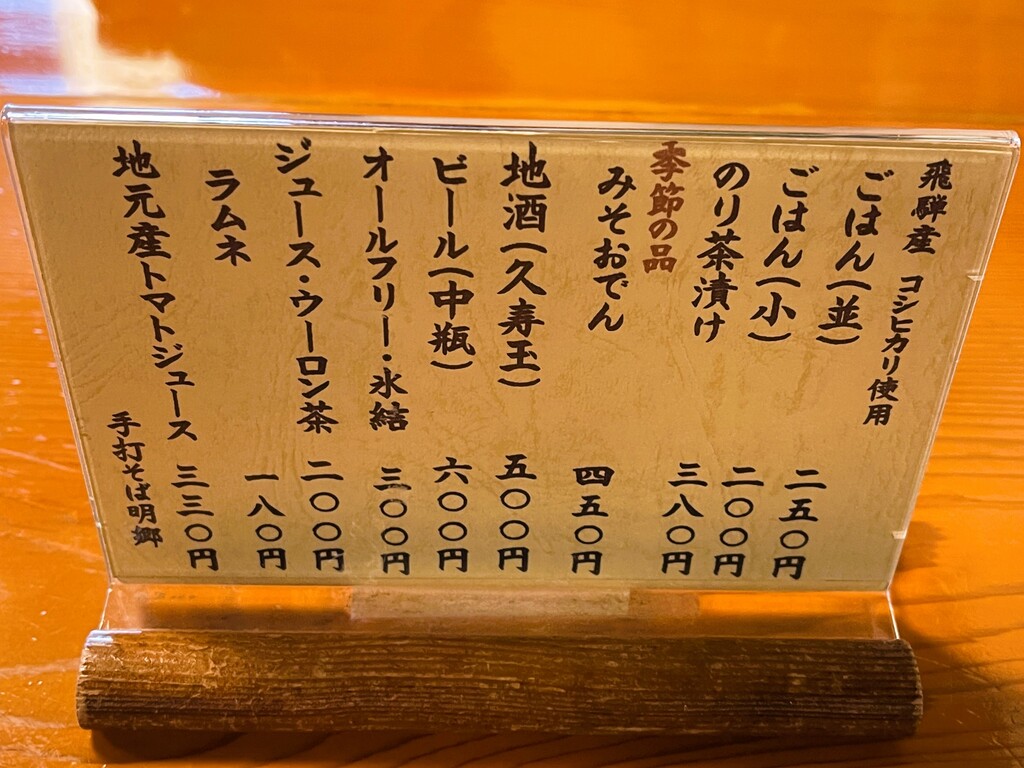 飛騨産 コシヒカリ使用
ごはん(並) 二五〇円
ごはん(小) 二〇〇円
のり茶漬け 三八〇円
季節の品
みそおでん 四五〇円
地酒(久寿玉) 五〇〇円
ビール(中瓶) 六〇〇円
オールフリー・氷結 三〇〇円
ジュース・ウーロン茶 二〇〇円
ラムネ 一八〇円
地元産トマトジュース 三三〇円
手打そば明郷